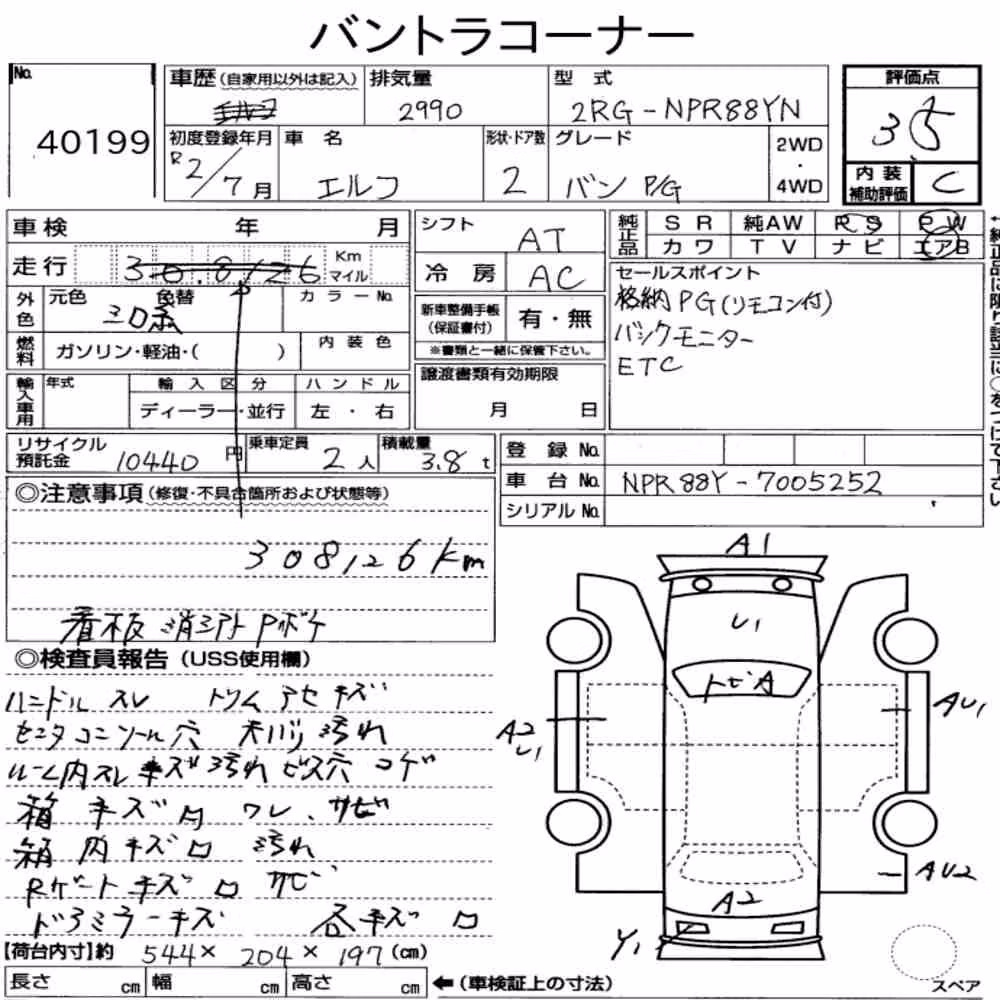 バントラコーナー
No. 40199
車歴 (自家用以外は記入) 排気量 2990 型式 2RG-NPR88YN
初度登録年月 R2/7月 車名 エルフ 形状・ドア数 2 グレード バン P/G 2WD・4WD
評価点 3.5
内装補助評価 C
車検 年 月
走行 308126 Km マイル
外色 元色 シロ系 色替 カラーNo.
燃料 ガソリン・軽油・( ) 内装色
輸入車用 年式 輸入区分 ディーラー・並行 ハンドル 左・右
シフト AT
冷房 AC
新車整備手帳(保証書付) 有・無
※書類と一緒に保管下さい。
譲渡書類有効期限 月 日
純正品 SR 純AW RS PW
カワ TV ナビ エアB
セールスポイント
格納PG(リモコン付)
バックモニター
ETC
リサイクル預託金 10440円 乗車定員 2人 積載量 3.8t
登録No.
車台No. NPR88Y-7005252
シリアルNo.
◎注意事項 (修復・不具合箇所および状態等)
308126Km
看板消シアト Pボケ
◎検査員報告 (USS使用欄)
ハンドルスレ トリムアセキズ
センタコンソール穴 内バリ汚れ
ルーム内スレキズ汚れビス穴コゲ
箱キズ凹ワレ、サビ
箱内キズ凹 汚れ
Rゲートキズ凹 サビ
ドアミラーキズ 各キズ凹
【荷台内寸】約 544×204×197(cm)
長さ cm 幅 cm 高さ cm ←(車検証上の寸法)
A1
U1
トビA
A2
U1
AU1
AU2
A2
Y1
スペア